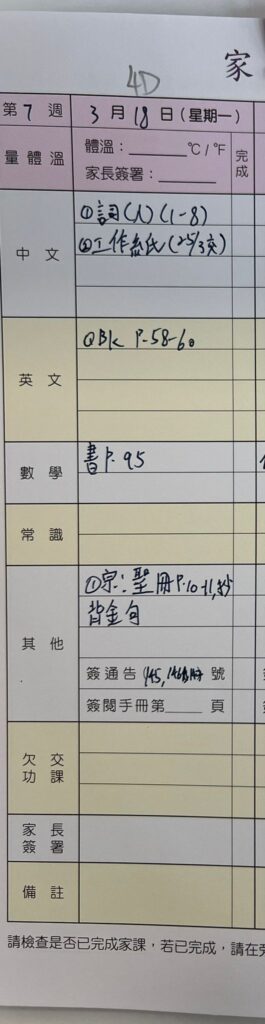 4D
家
第 7 週 3 月 18 日 (星期一)
量體溫 體溫：______ °C / °F 完成
家長簽署：______
中文 ①詞(八) (1-8)
②工作紙(25/3交)
英文 ①Bk P.58-60
數學 書P.95
常識
其他 ①宗：聖冊P.10-11,抄
背金句
簽通告 145, 號
簽閱手冊第____頁
欠交功課
家長簽署
備註
請檢查是否已完成家課，若已完成，請在